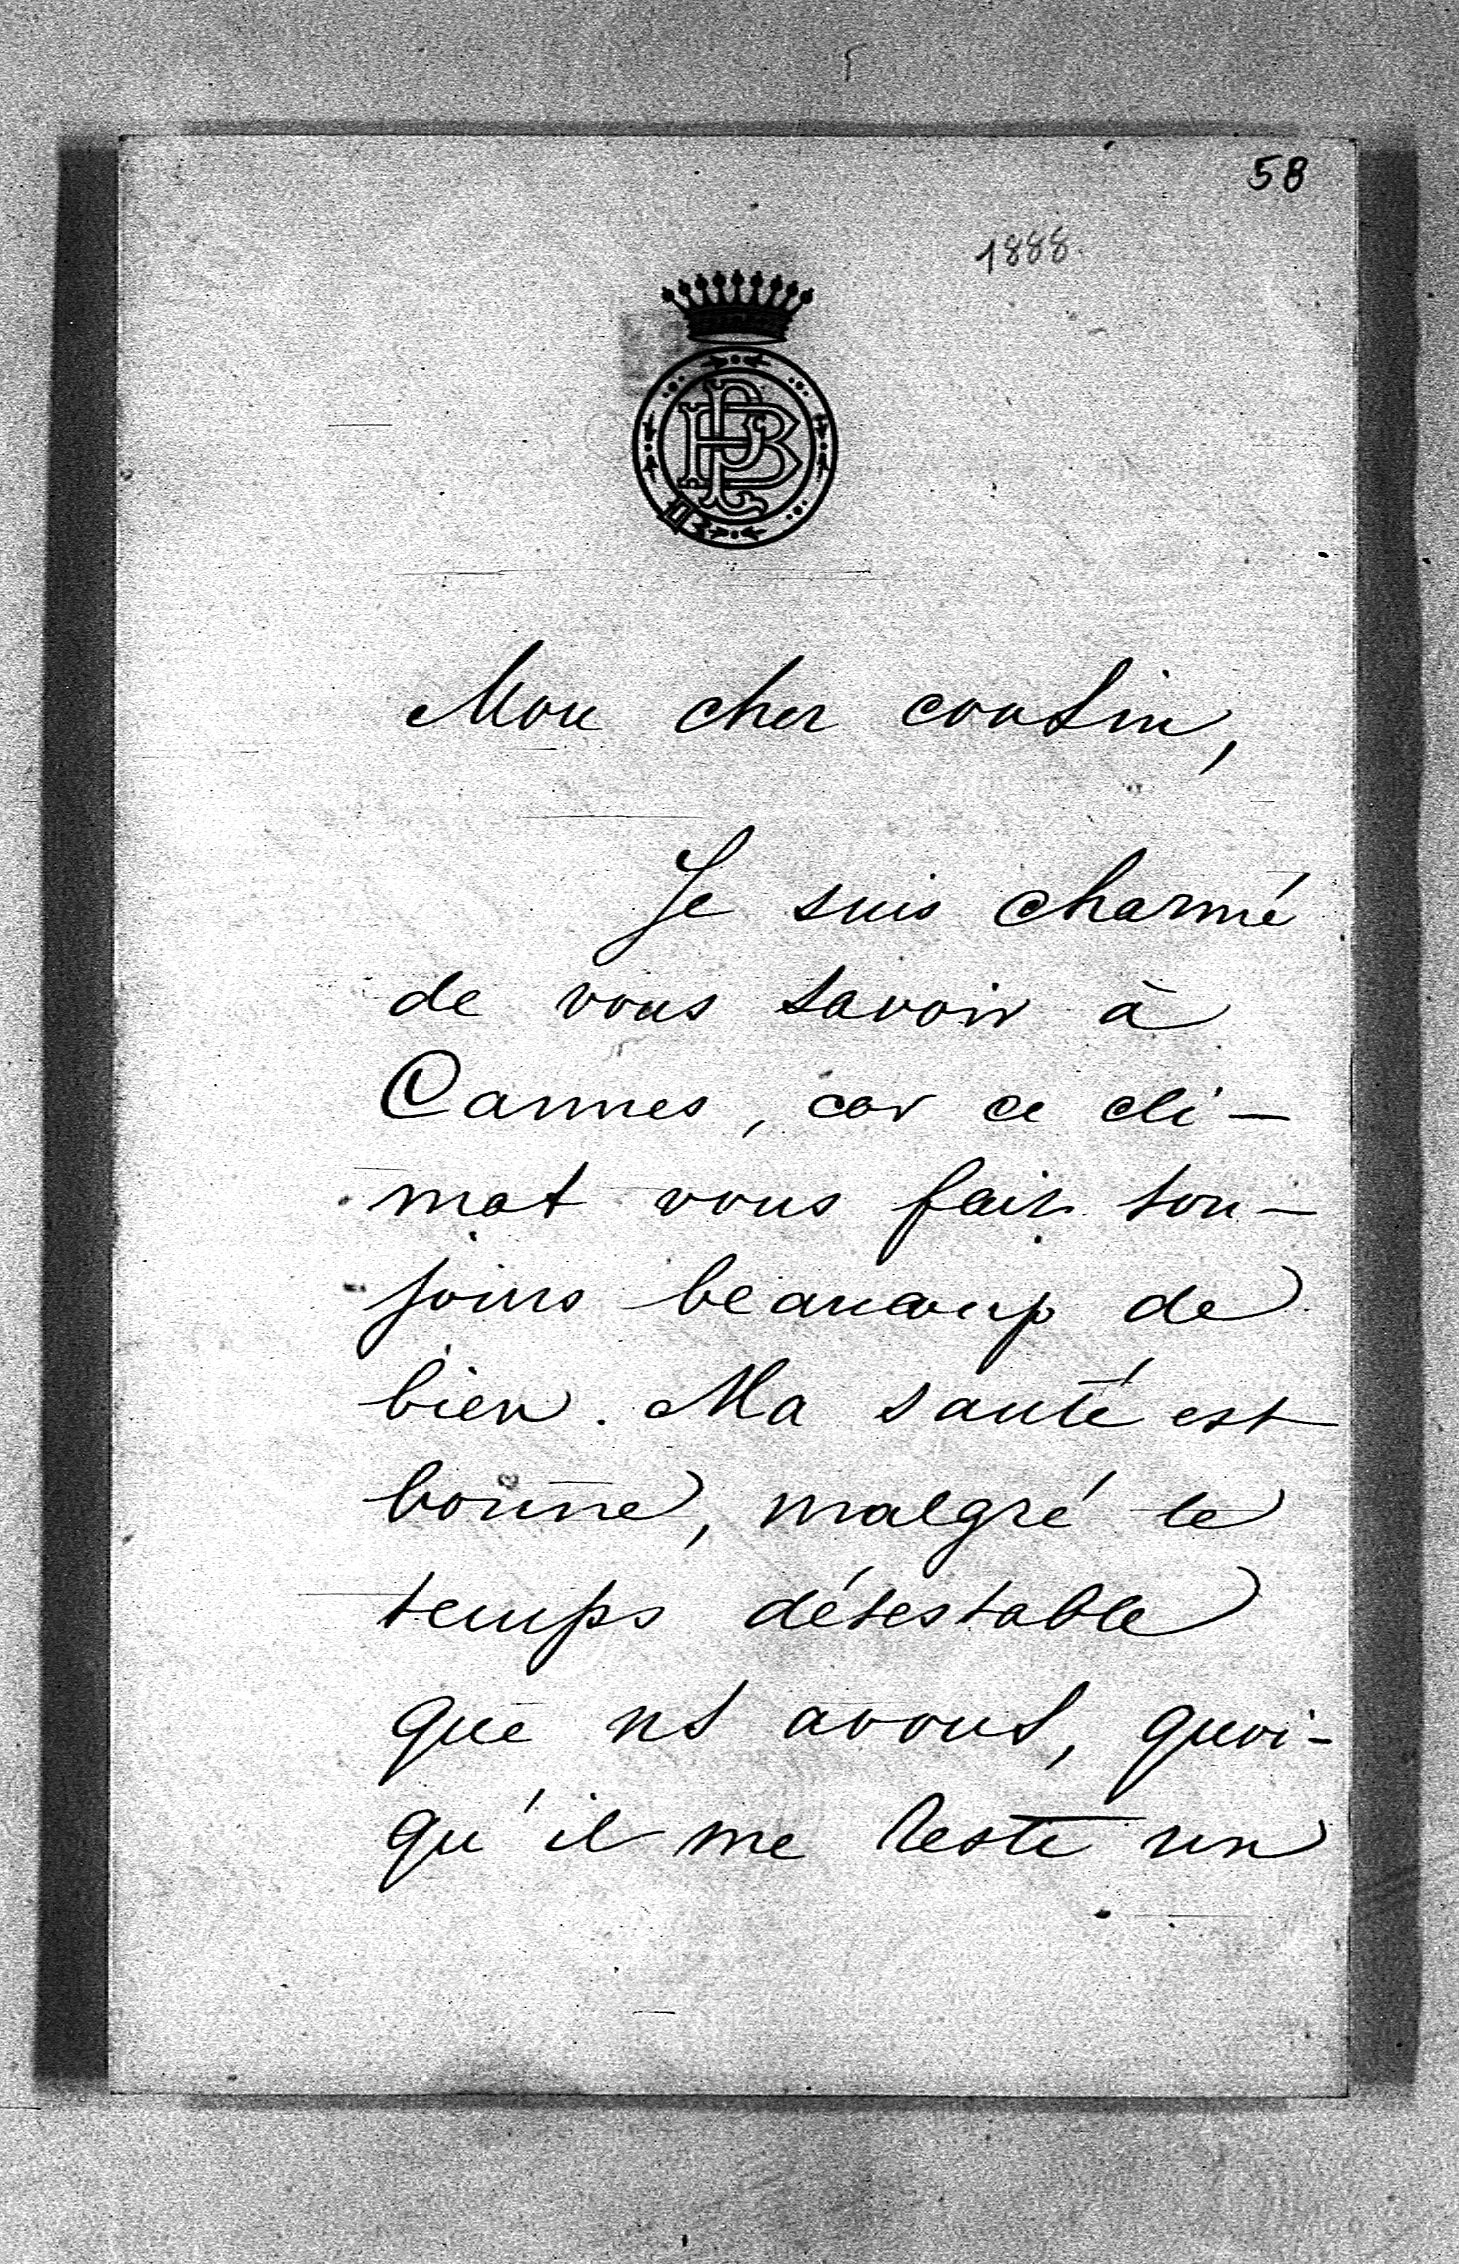 58
1888.
Mon cher cousin,
Je suis charmé
de vous savoir à
Cannes, car ce cli-
mat vous fait tou-
jours beaucoup de
bien. Ma santé est
bonne, malgré le
temps détestable
que ns avons, quoi-
qu'il me reste un